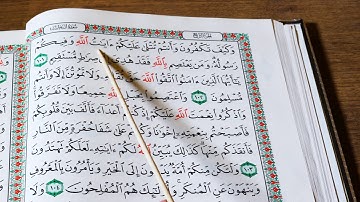 وَكَيْفَ تَكْفُرُونَ وَأَنتُمْ تُتْلَىٰ عَلَيْكُمْ ءَايَٰتُ ٱللَّهِ وَفِيكُمْ
رَسُولُهُۥ وَمَن يَعْتَصِم بِٱللَّهِ فَقَدْ هُدِىَ إِلَىٰ صِرَٰطٍ مُّسْتَقِيمٍ ١٠١
يَٰٓأَيُّهَا ٱلَّذِينَ ءَامَنُوا۟ ٱتَّقُوا۟ ٱللَّهَ حَقَّ تُقَاتِهِۦ وَلَا تَمُوتُنَّ إِلَّا وَأَنتُم
مُّسْلِمُونَ ١٠٢ وَٱعْتَصِمُوا۟ بِحَبْلِ ٱللَّهِ جَمِيعًا وَلَا تَفَرَّقُوا۟
وَٱذْكُرُوا۟ نِعْمَتَ ٱللَّهِ عَلَيْكُمْ إِذْ كُنتُمْ أَعْدَآءً فَأَلَّفَ بَيْنَ قُلُوبِكُمْ
فَأَصْبَحْتُم بِنِعْمَتِهِۦٓ إِخْوَٰنًا وَكُنتُمْ عَلَىٰ شَفَا حُفْرَةٍ مِّنَ ٱلنَّارِ
فَأَنقَذَكُم مِّنْهَا كَذَٰلِكَ يُبَيِّنُ ٱللَّهُ لَكُمْ ءَايَٰتِهِۦ لَعَلَّكُمْ تَهْتَدُونَ
١٠٣ وَلْتَكُن مِّنكُمْ أُمَّةٌ يَدْعُونَ إِلَى ٱلْخَيْرِ وَيَأْمُرُونَ بِٱلْمَعْرُوفِ
وَيَنْهَوْنَ عَنِ ٱلْمُنكَرِ وَأُو۟لَٰٓئِكَ هُمُ ٱلْمُفْلِحُونَ ١٠٤